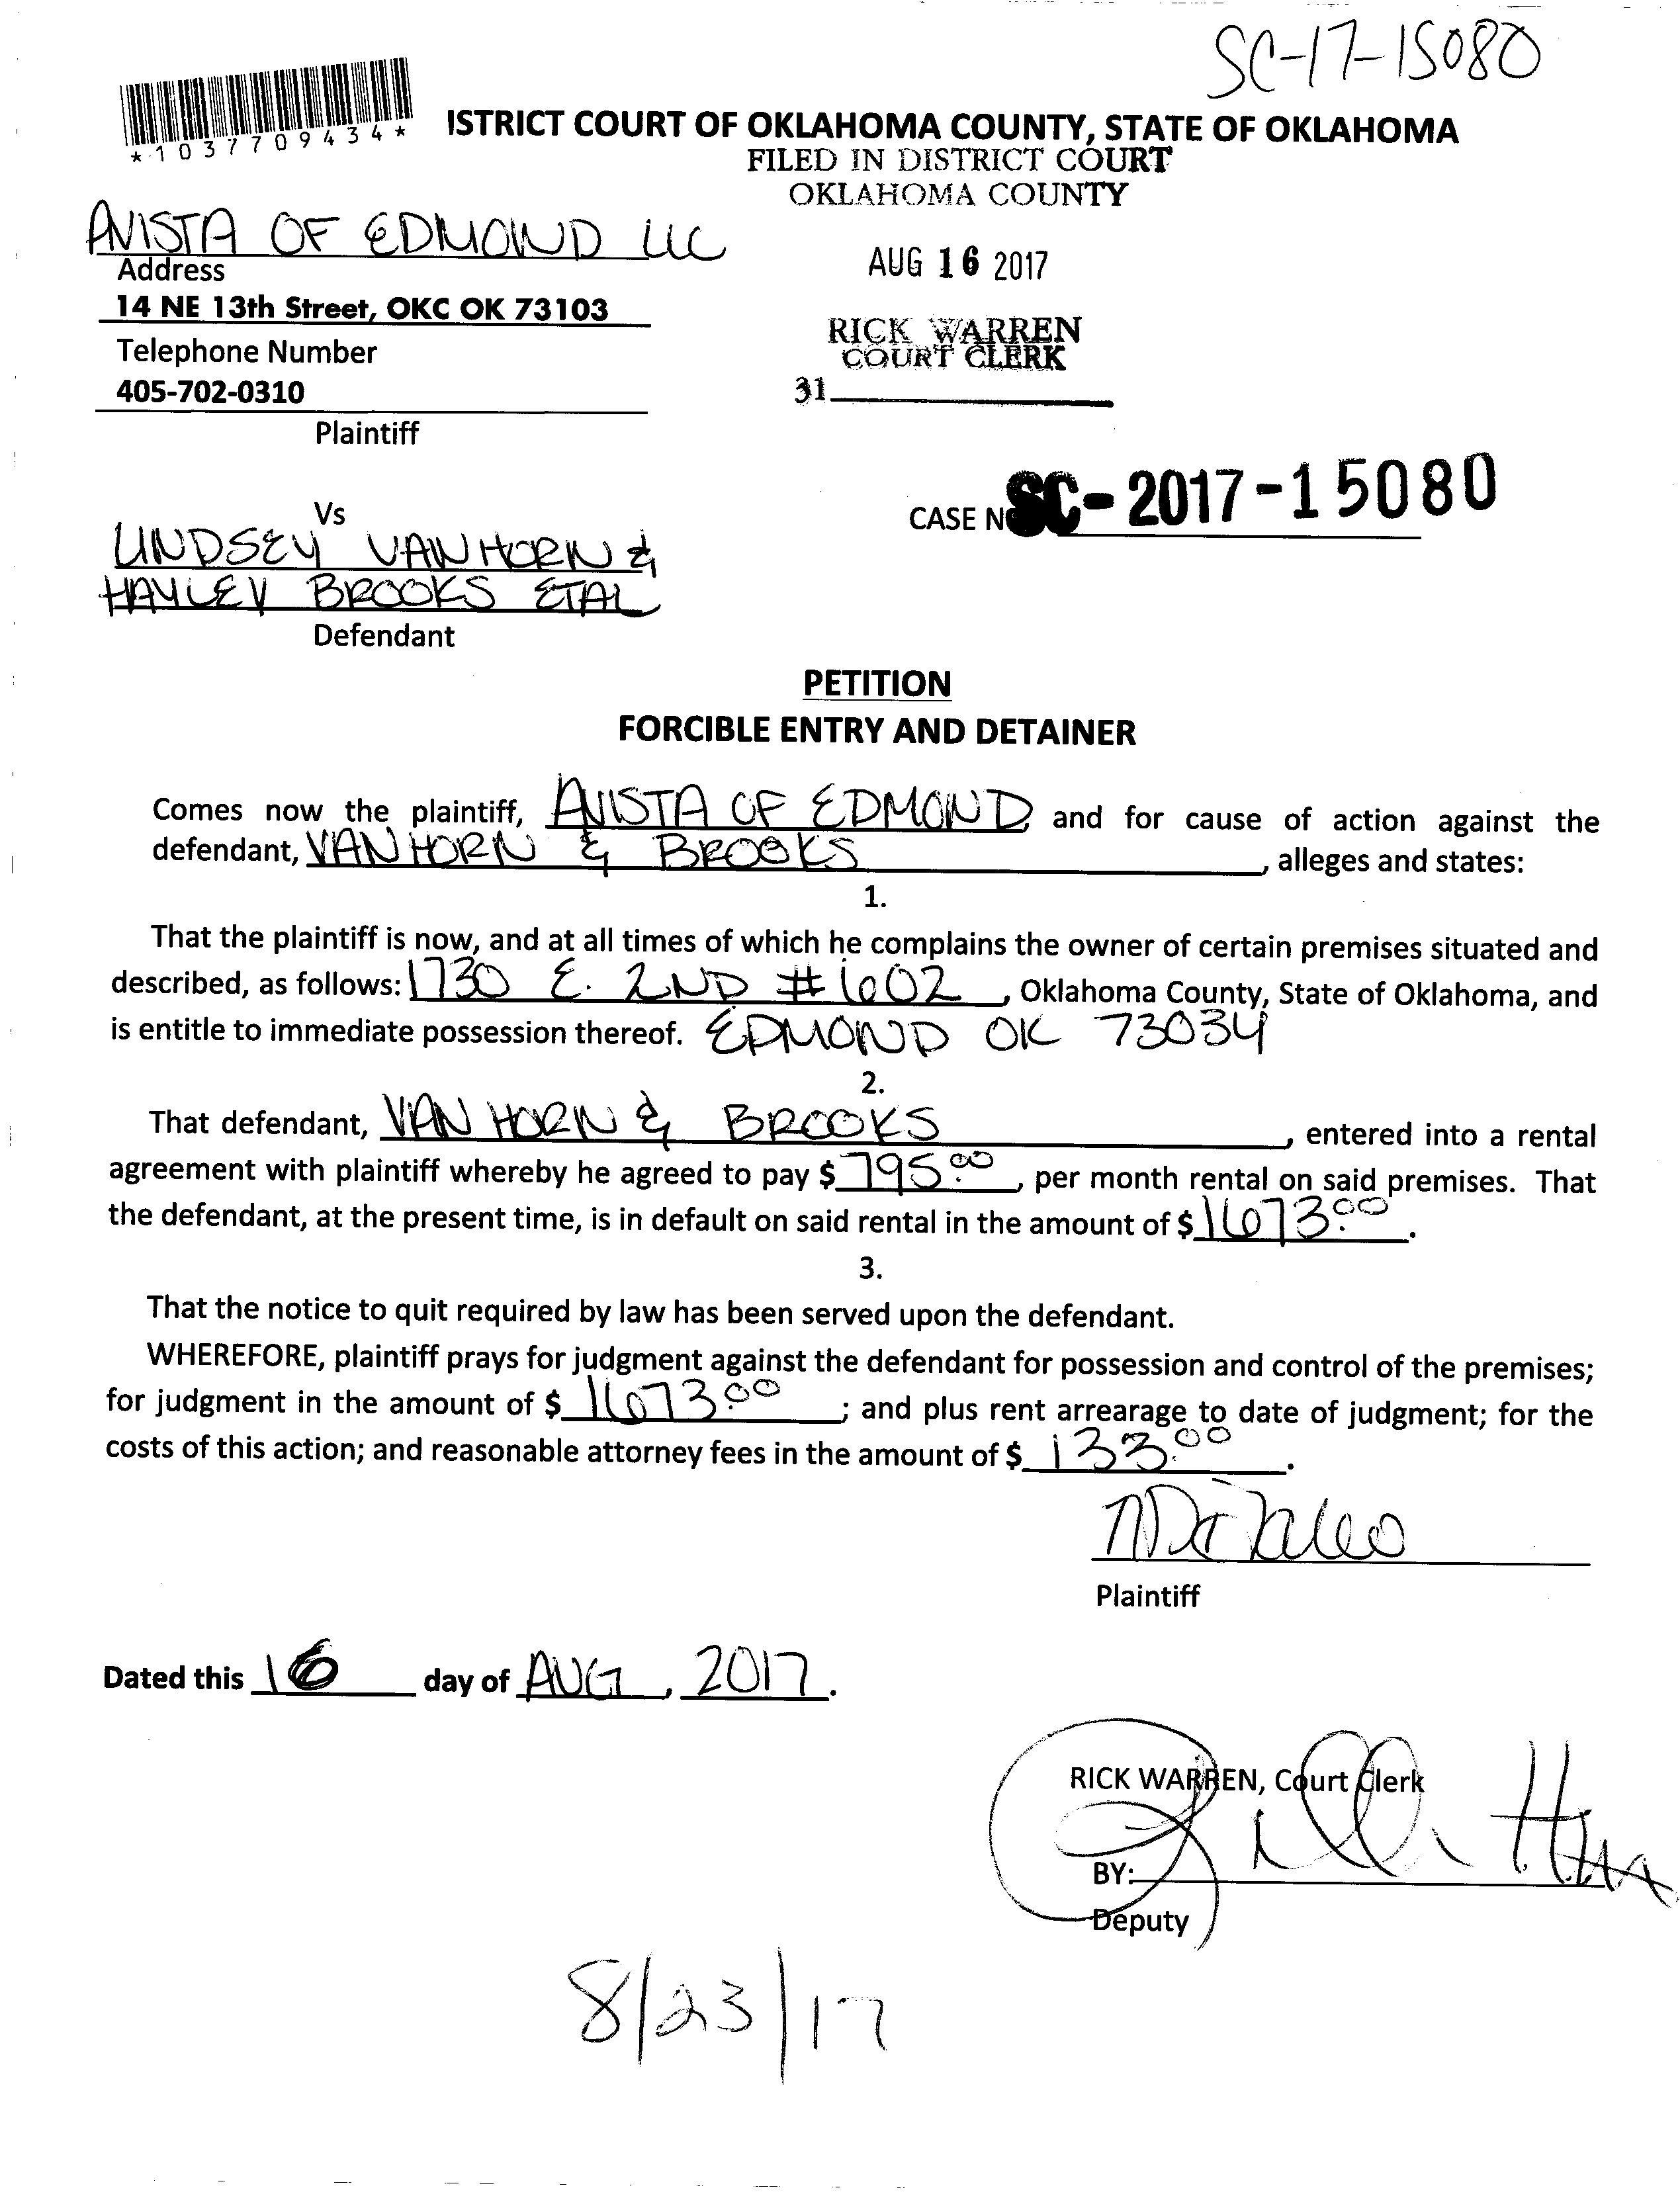 SC-17-15080
*1037709434*
ISTRICT COURT OF OKLAHOMA COUNTY, STATE OF OKLAHOMA
FILED IN DISTRICT COURT
OKLAHOMA COUNTY
AVISTA OF EDMOND LLC
Address
14 NE 13th Street, OKC OK 73103
Telephone Number
405-702-0310
Plaintiff
AUG 16 2017
RICK WARREN
COURT CLERK
31
Vs
LINDSEY VANHORN &
HAYLEY BROOKS ETAL
Defendant
CASE No SC-2017-15080
PETITION
FORCIBLE ENTRY AND DETAINER
Comes now the plaintiff, AVISTA OF EDMOND, and for cause of action against the
defendant, VAN HORN & BROOKS, alleges and states:
1.
That the plaintiff is now, and at all times of which he complains the owner of certain premises situated and
described, as follows: 1730 E. 2ND #602, Oklahoma County, State of Oklahoma, and
is entitle to immediate possession thereof. EDMOND OK 73034
2.
That defendant, VAN HORN & BROOKS, entered into a rental
agreement with plaintiff whereby he agreed to pay $ 795.00, per month rental on said premises. That
the defendant, at the present time, is in default on said rental in the amount of $ 1673.00.
3.
That the notice to quit required by law has been served upon the defendant.
WHEREFORE, plaintiff prays for judgment against the defendant for possession and control of the premises;
for judgment in the amount of $ 1673.00; and plus rent arrearage to date of judgment; for the
costs of this action; and reasonable attorney fees in the amount of $ 133.00.
Plaintiff
Dated this 16 day of AUG, 2017.
RICK WARREN, Court Clerk
BY:
Deputy
8/23/17